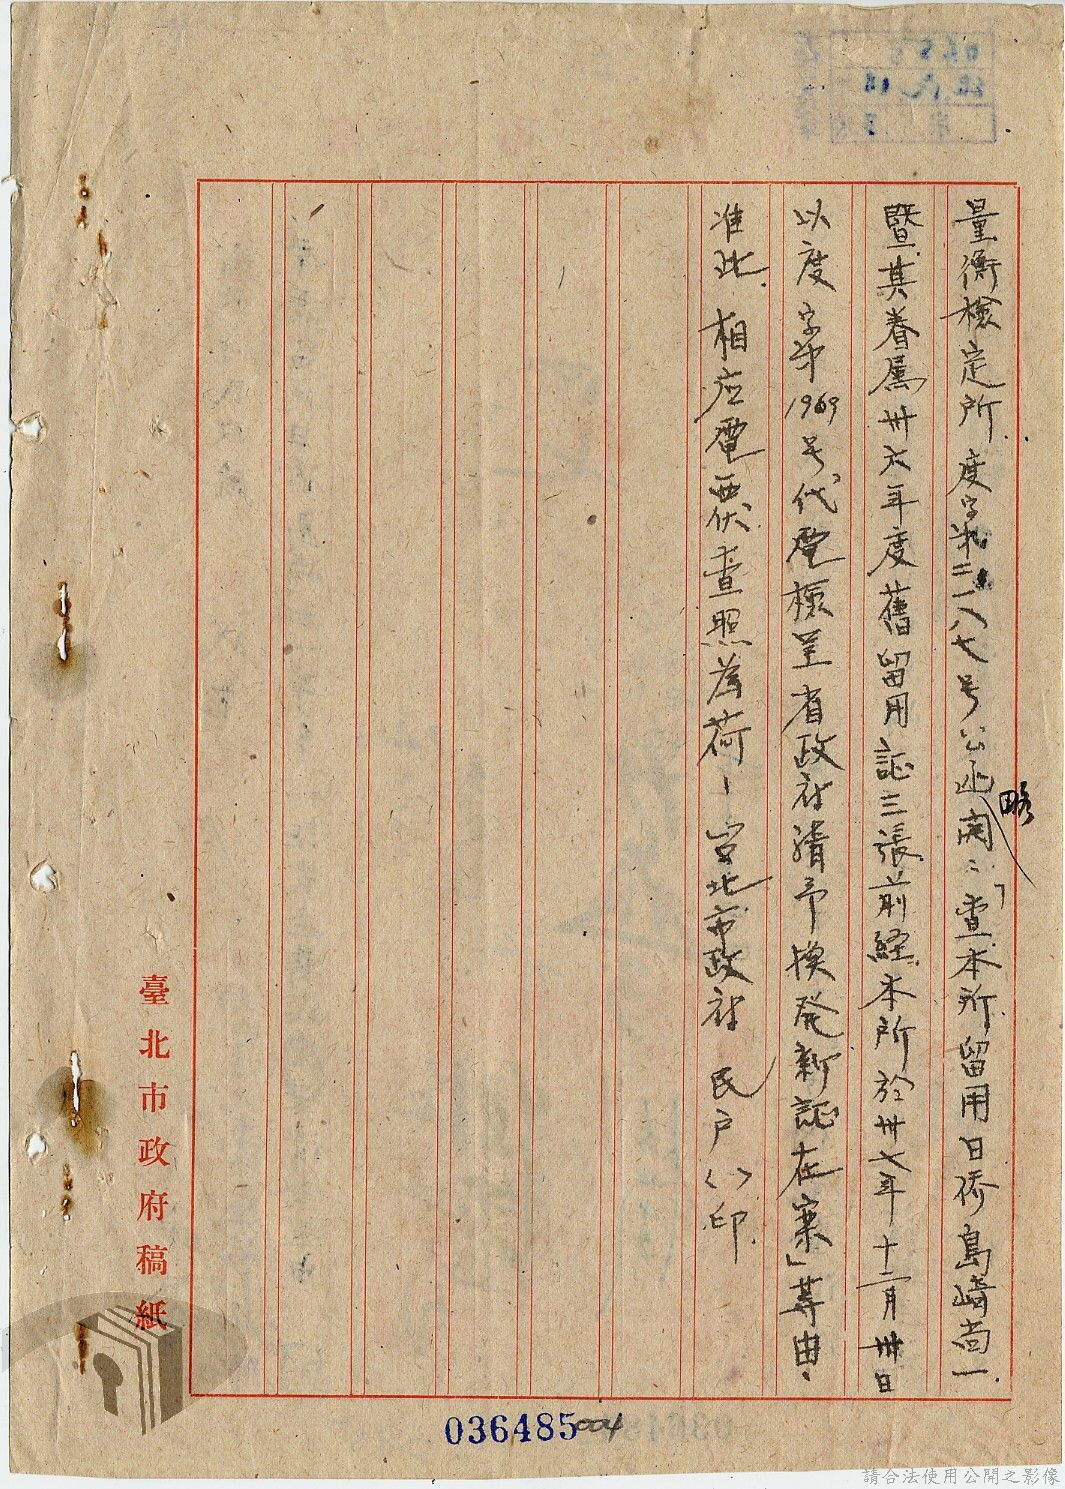 量衡檢定所度字第二一八七号公函開：「查本所留用日侨島崎尚一
略
暨其眷属卅六年度舊留用証三張前経本所於卅七年十二月卅日
以度字第1969号代電檢呈省政府請予換発新証在案」等由，
准此．相应電覆伏查照為荷－台北市政府民戶〈〉印
臺北市政府稿紙
036485004
請合法使用公開之影像